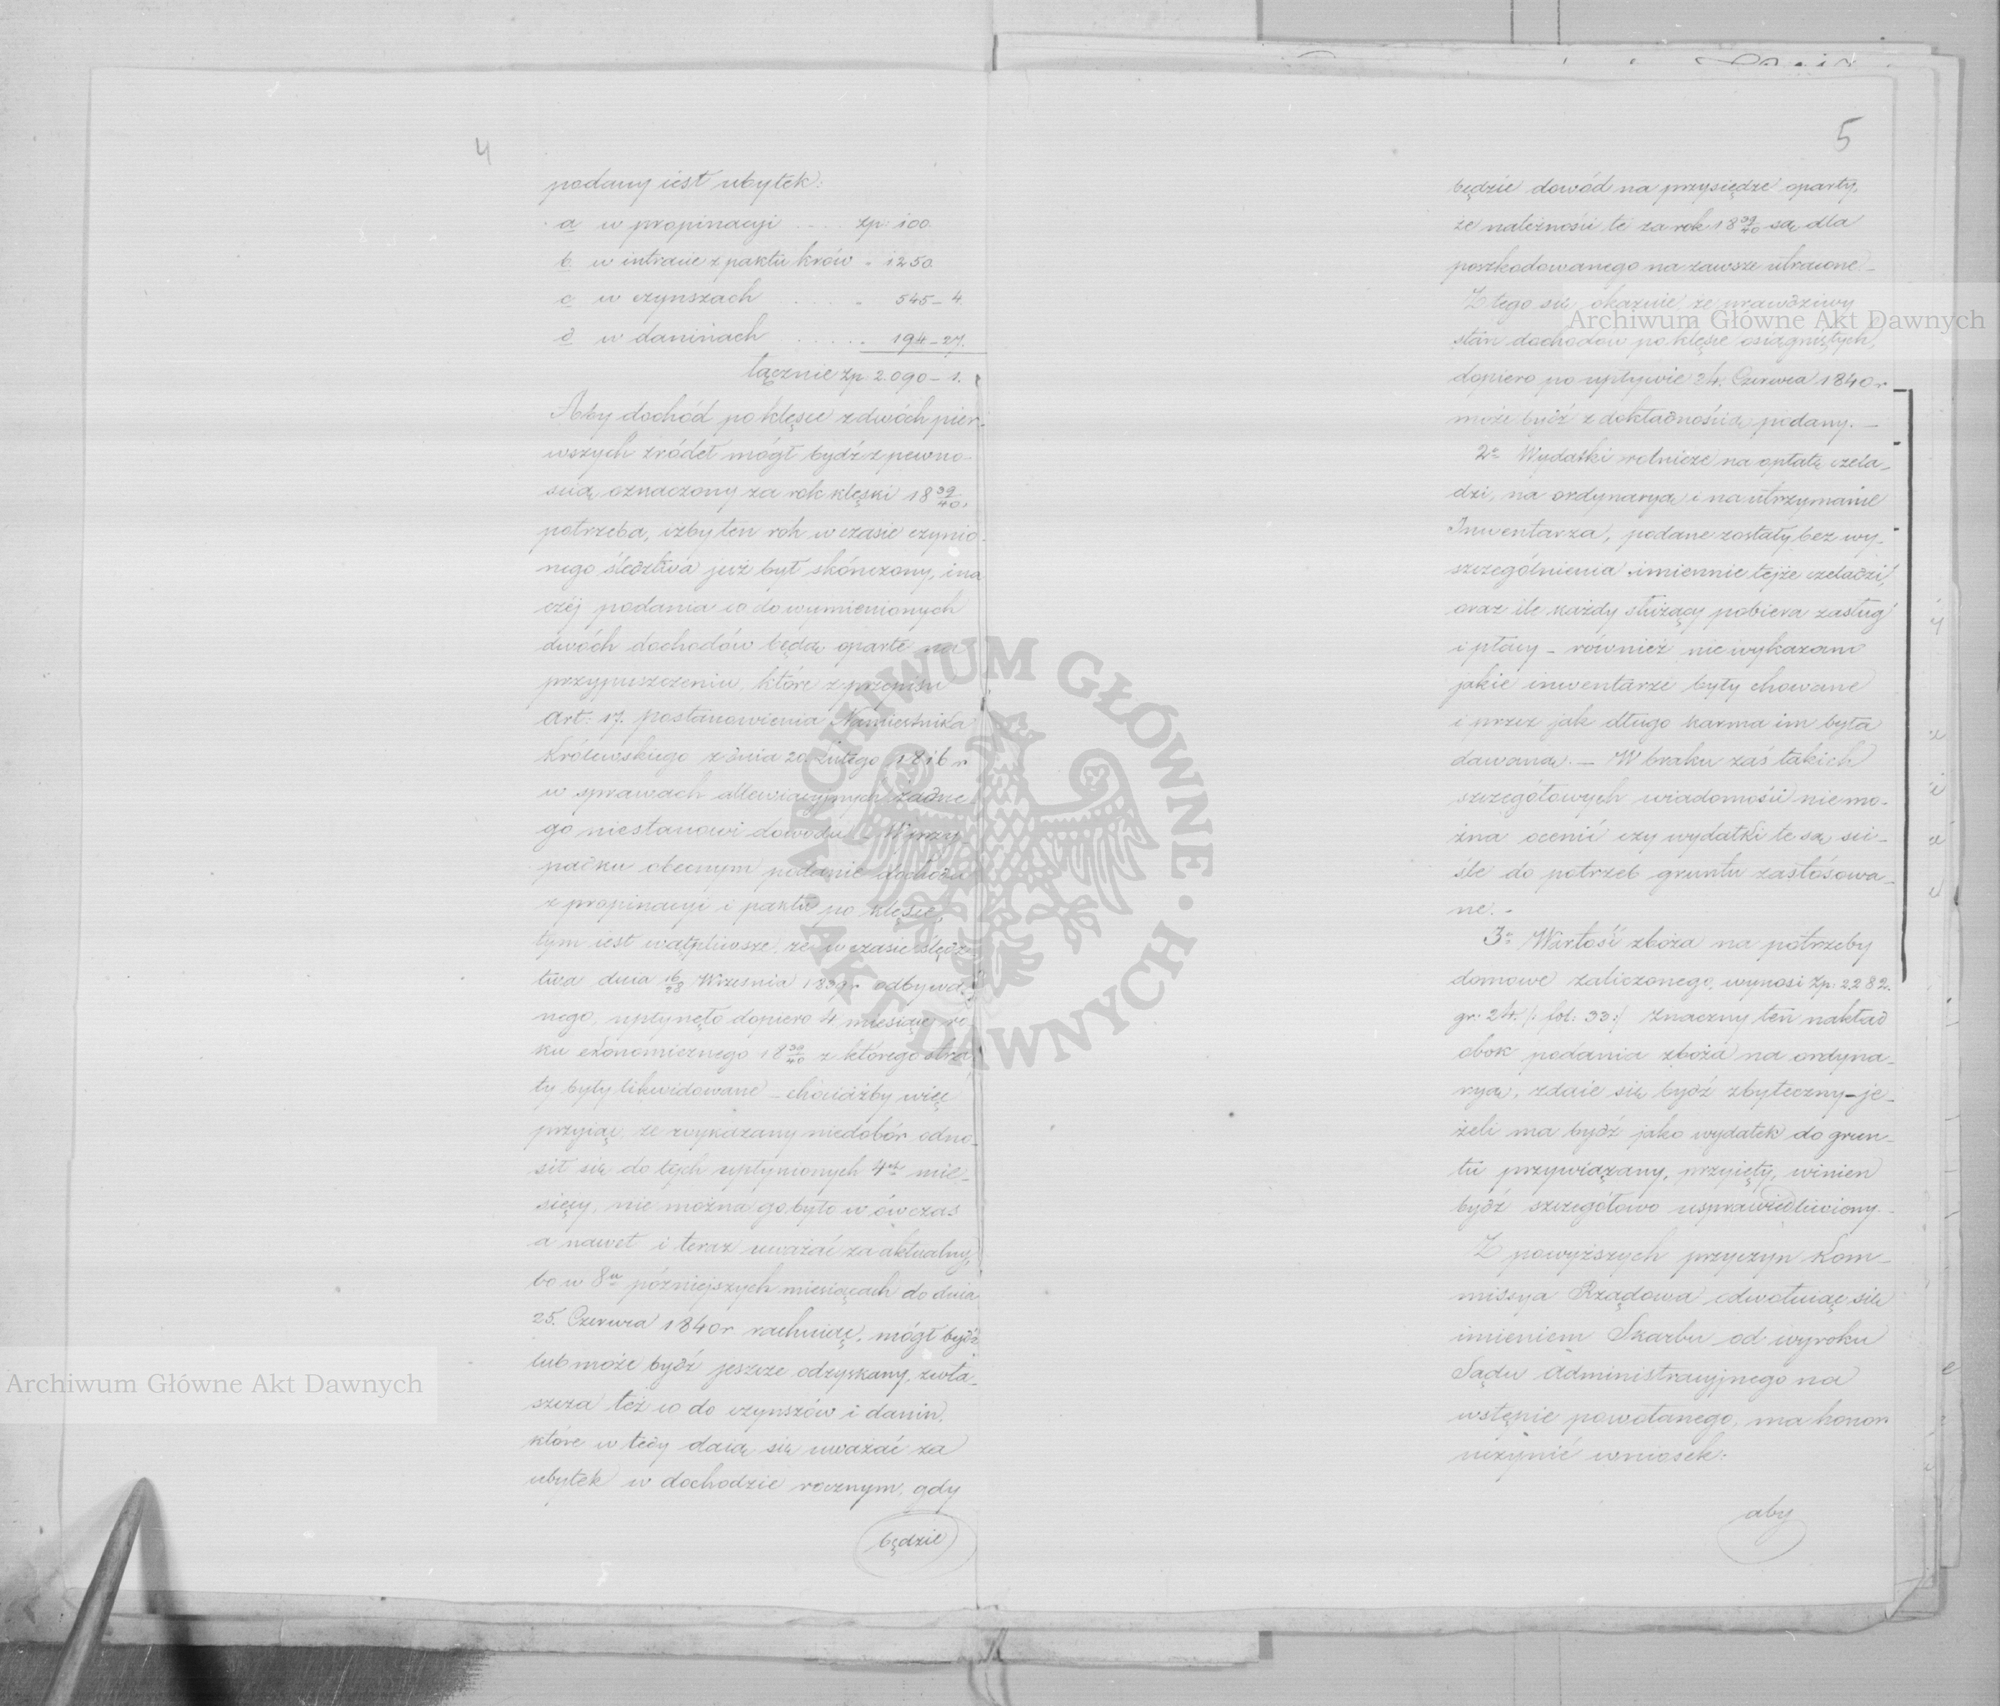 4
podany iest ubytek:
a w propinacyi .... zp: 100.
b. w intracie z paktu krów „ 1250
c w czynszach .... „ 545-4.
d w daninach ..... 194-27.
łącznie zp. 2.090-1.
Aby dochód po klęsce z dwóch pier-
wszych źródeł mógł bydź z pewno-
ścią oznaczony za rok klęski 18 39/40,
potrzeba, iżby ten rok w czasie czynio-
nego śledztwa już był skończony, ina
czéj podania co do wymienionych
dwóch dochodów będą oparte na
przypuszczeniu, które z przepisu
Art: 17. postanowienia Namiestnika
Królewskiego z dnia 20. Lutego 1816 r.
w sprawach allewiacyjnych żadne-
go niestanowi dowodu. – W przy-
padku obecnym podanie dochodu
z propinacyi i paktu po klęsce,
tym iest wątpliwsze, że w czasie śledz-
twa dnia 16/28 Września 1839 r. odbywa-
nego, upłynęło dopiero 4 miesiące ro-
ku ekonomicznego 18 39/40 z którego stra-
ty były likwidowane – chociażby więc
przyiąć, że wykazany niedobór odno-
sił się do tych upłynionych 4ch mie-
sięcy, nie można go było w ówczas
a nawet i teraz uważać za aktualny,
bo w 8u późniejszych miesiącach do dnia
25. Czerwca 1840 r rachuiąc, mógł bydź
lub może bydź jeszcze odzyskany, zwła-
szcza też co do czynszów i danin,
które w tedy daią się uważać za
ubytek w dochodzie rocznym, gdy
będzie
5
będzie dowód na przysiędze oparty,
że należności te za rok 18 39/40 są dla
poszkodowanego na zawsze utracone –
Z tego się okazuie że prawdziwy
stan dochodów po klęsce osiągniętych,
dopiero po upływie 24. Czerwca 1840 r
może bydź z dokładnością podany. –
2o Wydatki rolnicze na opłatę czela-
dzi, na ordynaryą i na utrzymanie
Inwentarza, podane zostały bez wy-
szczególnienia imiennie tejże czeladzi,
oraz ile każdy służący pobiera zasług
i płacy – również nie wykazano
jakie inwentarze były chowane
i przez jak długo karma im była
dawaną. – W braku zaś takich
szczegółowych wiadomości niemo-
żna ocenić czy wydatki te są ści-
śle do potrzeb gruntu zastósowa-
ne. –
3o Wartość zboża na potrzeby
domowe zaliczonego, wynosi zp. 2282.
gr. 24. /: fol: 33 :/ Znaczny ten nakład
obok podania zboża na ordyna-
ryą, zdaie się bydź zbyteczny – je-
żeli ma bydź jako wydatek do grun-
tu przywiązany, przyięty, winien
bydź szczegółowo usprawiedliwiony. –
Z powyższych przyczyn Kom-
missya Rządowa odwołuiąc się
imieniem Skarbu od wyroku
Sądu Administracyjnego na
wstępie powołanego, ma honor
uczynić wniosek:
aby
Archiwum Główne Akt Dawnych
Archiwum Główne Akt Dawnych
ARCHIWUM GŁÓWNE AKT DAWNYCH